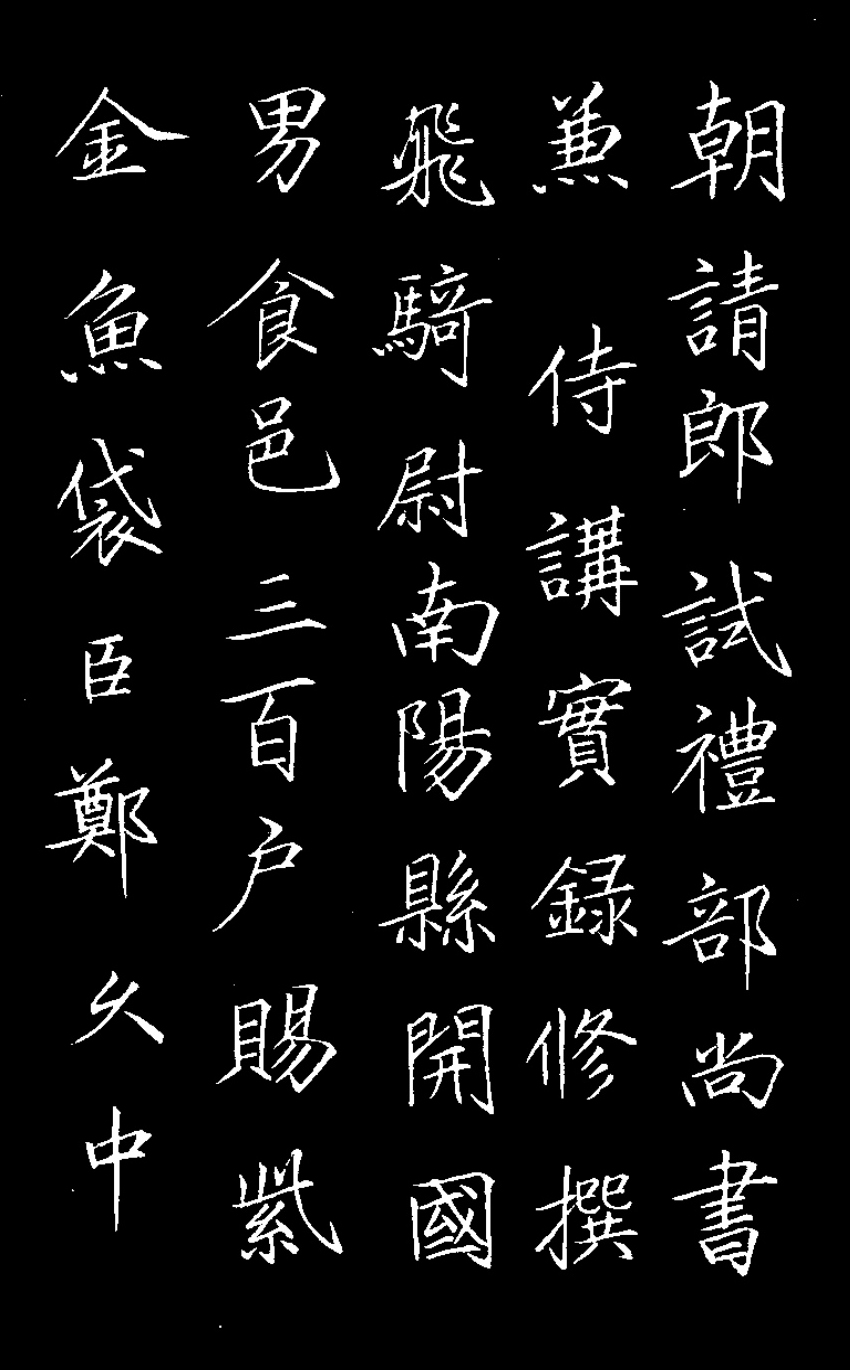 朝請郎試禮部尚書
兼侍講實録修撰
飛騎尉南陽縣開國
男食邑三百户賜紫
金魚袋臣鄭久中